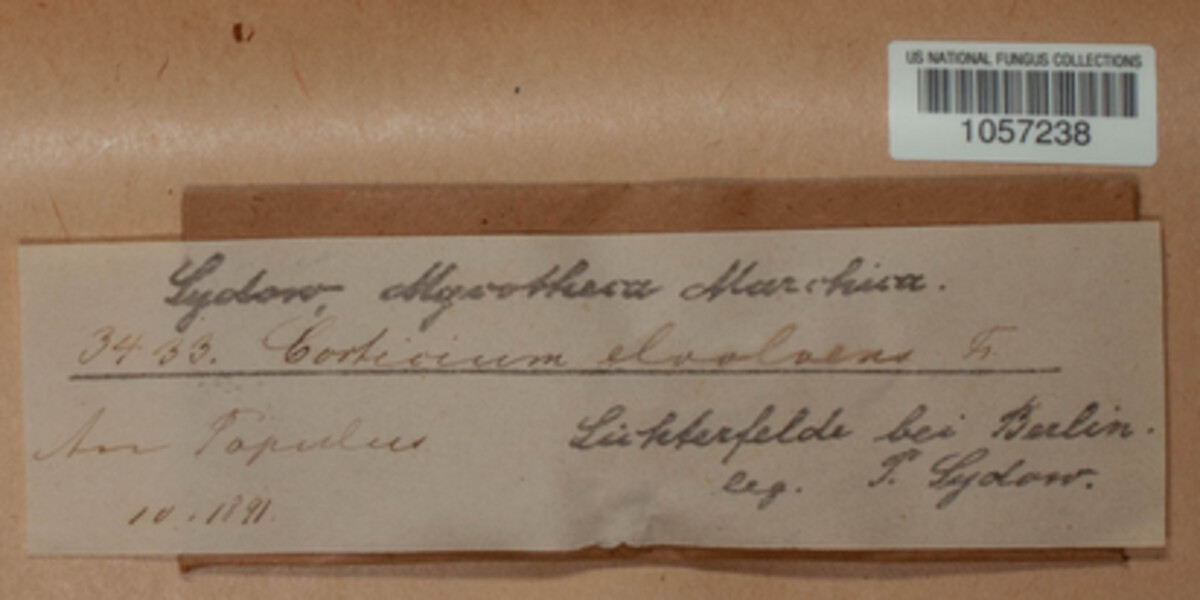 US NATIONAL FUNGUS COLLECTIONS
1057238
Sydow, Mycotheca Marchica.
3433. Corticium evolvens Fr.
An Populus
Lichterfelde bei Berlin.
10.1891.
leg. P. Sydow.